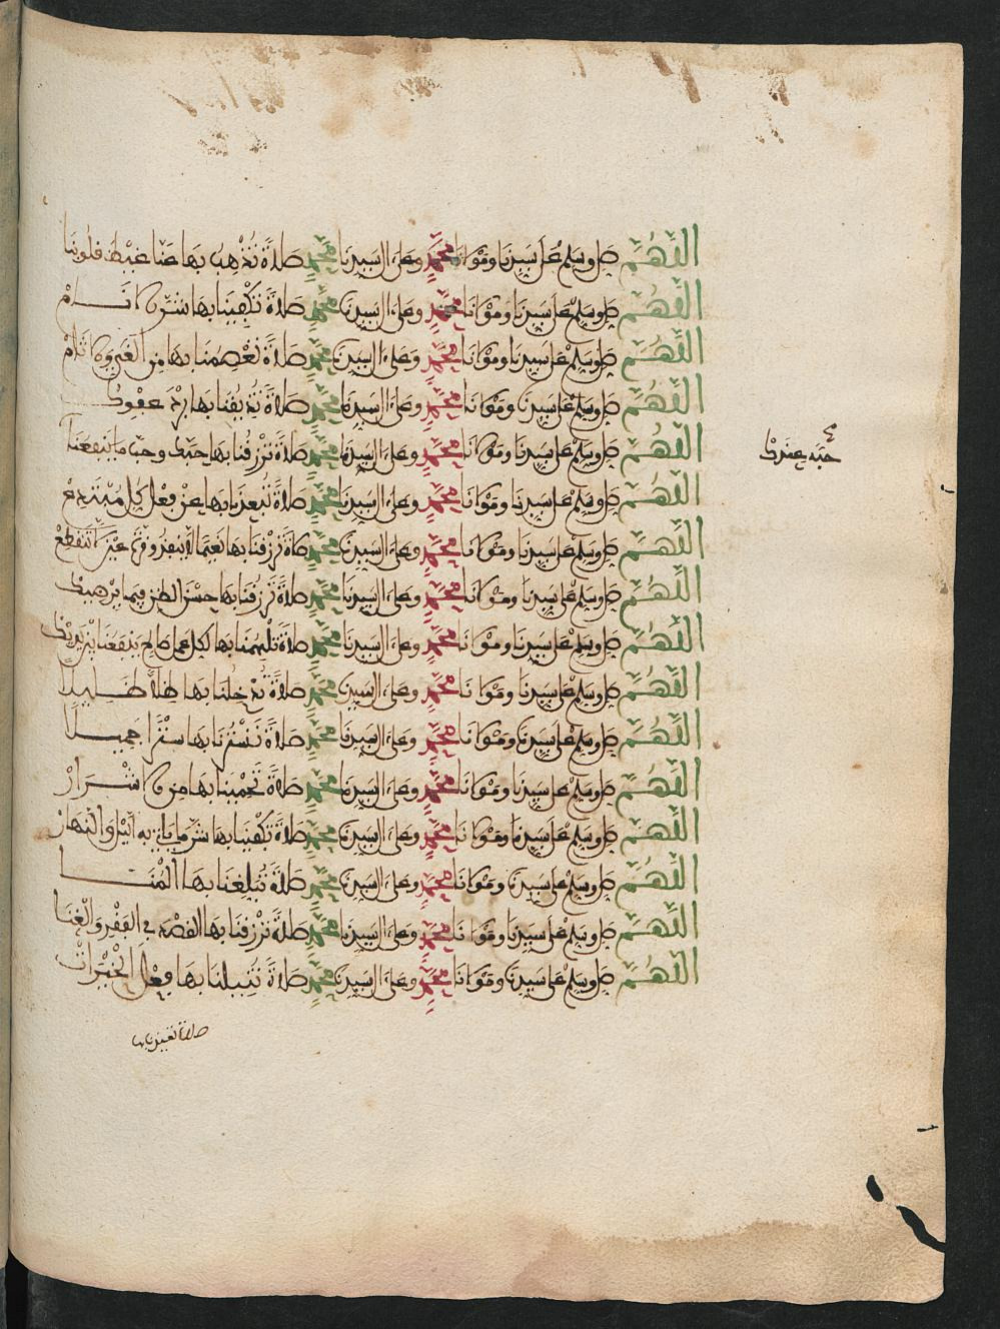 اللهم صل وسلم على سيدنا ومولانا محمد وعلى ال سيدنا محمد صلاة تذهب بها عنا غيظ قلوبنا
اللهم صل وسلم على سيدنا ومولانا محمد وعلى ال سيدنا محمد صلاة تكفينا بها شر الانـــام
اللهم صل وسلم على سيدنا ومولانا محمد وعلى ال سيدنا محمد صلاة تعصمنا بها من الغي والاثام
اللهم صل وسلم على سيدنا ومولانا محمد وعلى ال سيدنا محمد صلاة تذيقنا بها برد عفوك
اللهم صل وسلم على سيدنا ومولانا محمد وعلى ال سيدنا محمد صلاة ترزقنا بها حبك وحب ما ينفعنا
حبه عندك
اللهم صل وسلم على سيدنا ومولانا محمد وعلى ال سيدنا محمد صلاة تبعدنا بها عن فعل كل مبتدع
اللهم صل وسلم على سيدنا ومولانا محمد وعلى ال سيدنا محمد صلاة ترزقنا بها نعيما لا ينفد وقرة عين لا تنقطع
اللهم صل وسلم على سيدنا ومولانا محمد وعلى ال سيدنا محمد صلاة ترزقنا بها حسن الظن فيما يرضيك
اللهم صل وسلم على سيدنا ومولانا محمد وعلى ال سيدنا محمد صلاة تلهمنا بها لكل عمل صالح ينفعنا بين يديك
اللهم صل وسلم على سيدنا ومولانا محمد وعلى ال سيدنا محمد صلاة تدخلنا بها ظلا ظليلا
اللهم صل وسلم على سيدنا ومولانا محمد وعلى ال سيدنا محمد صلاة تسترنا بها سترا جميلا
اللهم صل وسلم على سيدنا ومولانا محمد وعلى ال سيدنا محمد صلاة تحمينا بها من الاشرار
اللهم صل وسلم على سيدنا ومولانا محمد وعلى ال سيدنا محمد صلاة تكفينا بها شر ما ياتي به اليل والنهار
اللهم صل وسلم على سيدنا ومولانا محمد وعلى ال سيدنا محمد صلاة تبلغنا بها المنـــا
اللهم صل وسلم على سيدنا ومولانا محمد وعلى ال سيدنا محمد صلاة ترزقنا بها القصد في الفقر والغنا
اللهم صل وسلم على سيدنا ومولانا محمد وعلى ال سيدنا محمد صلاة تنيلنا بها فعل الخيرات
صلاة بها